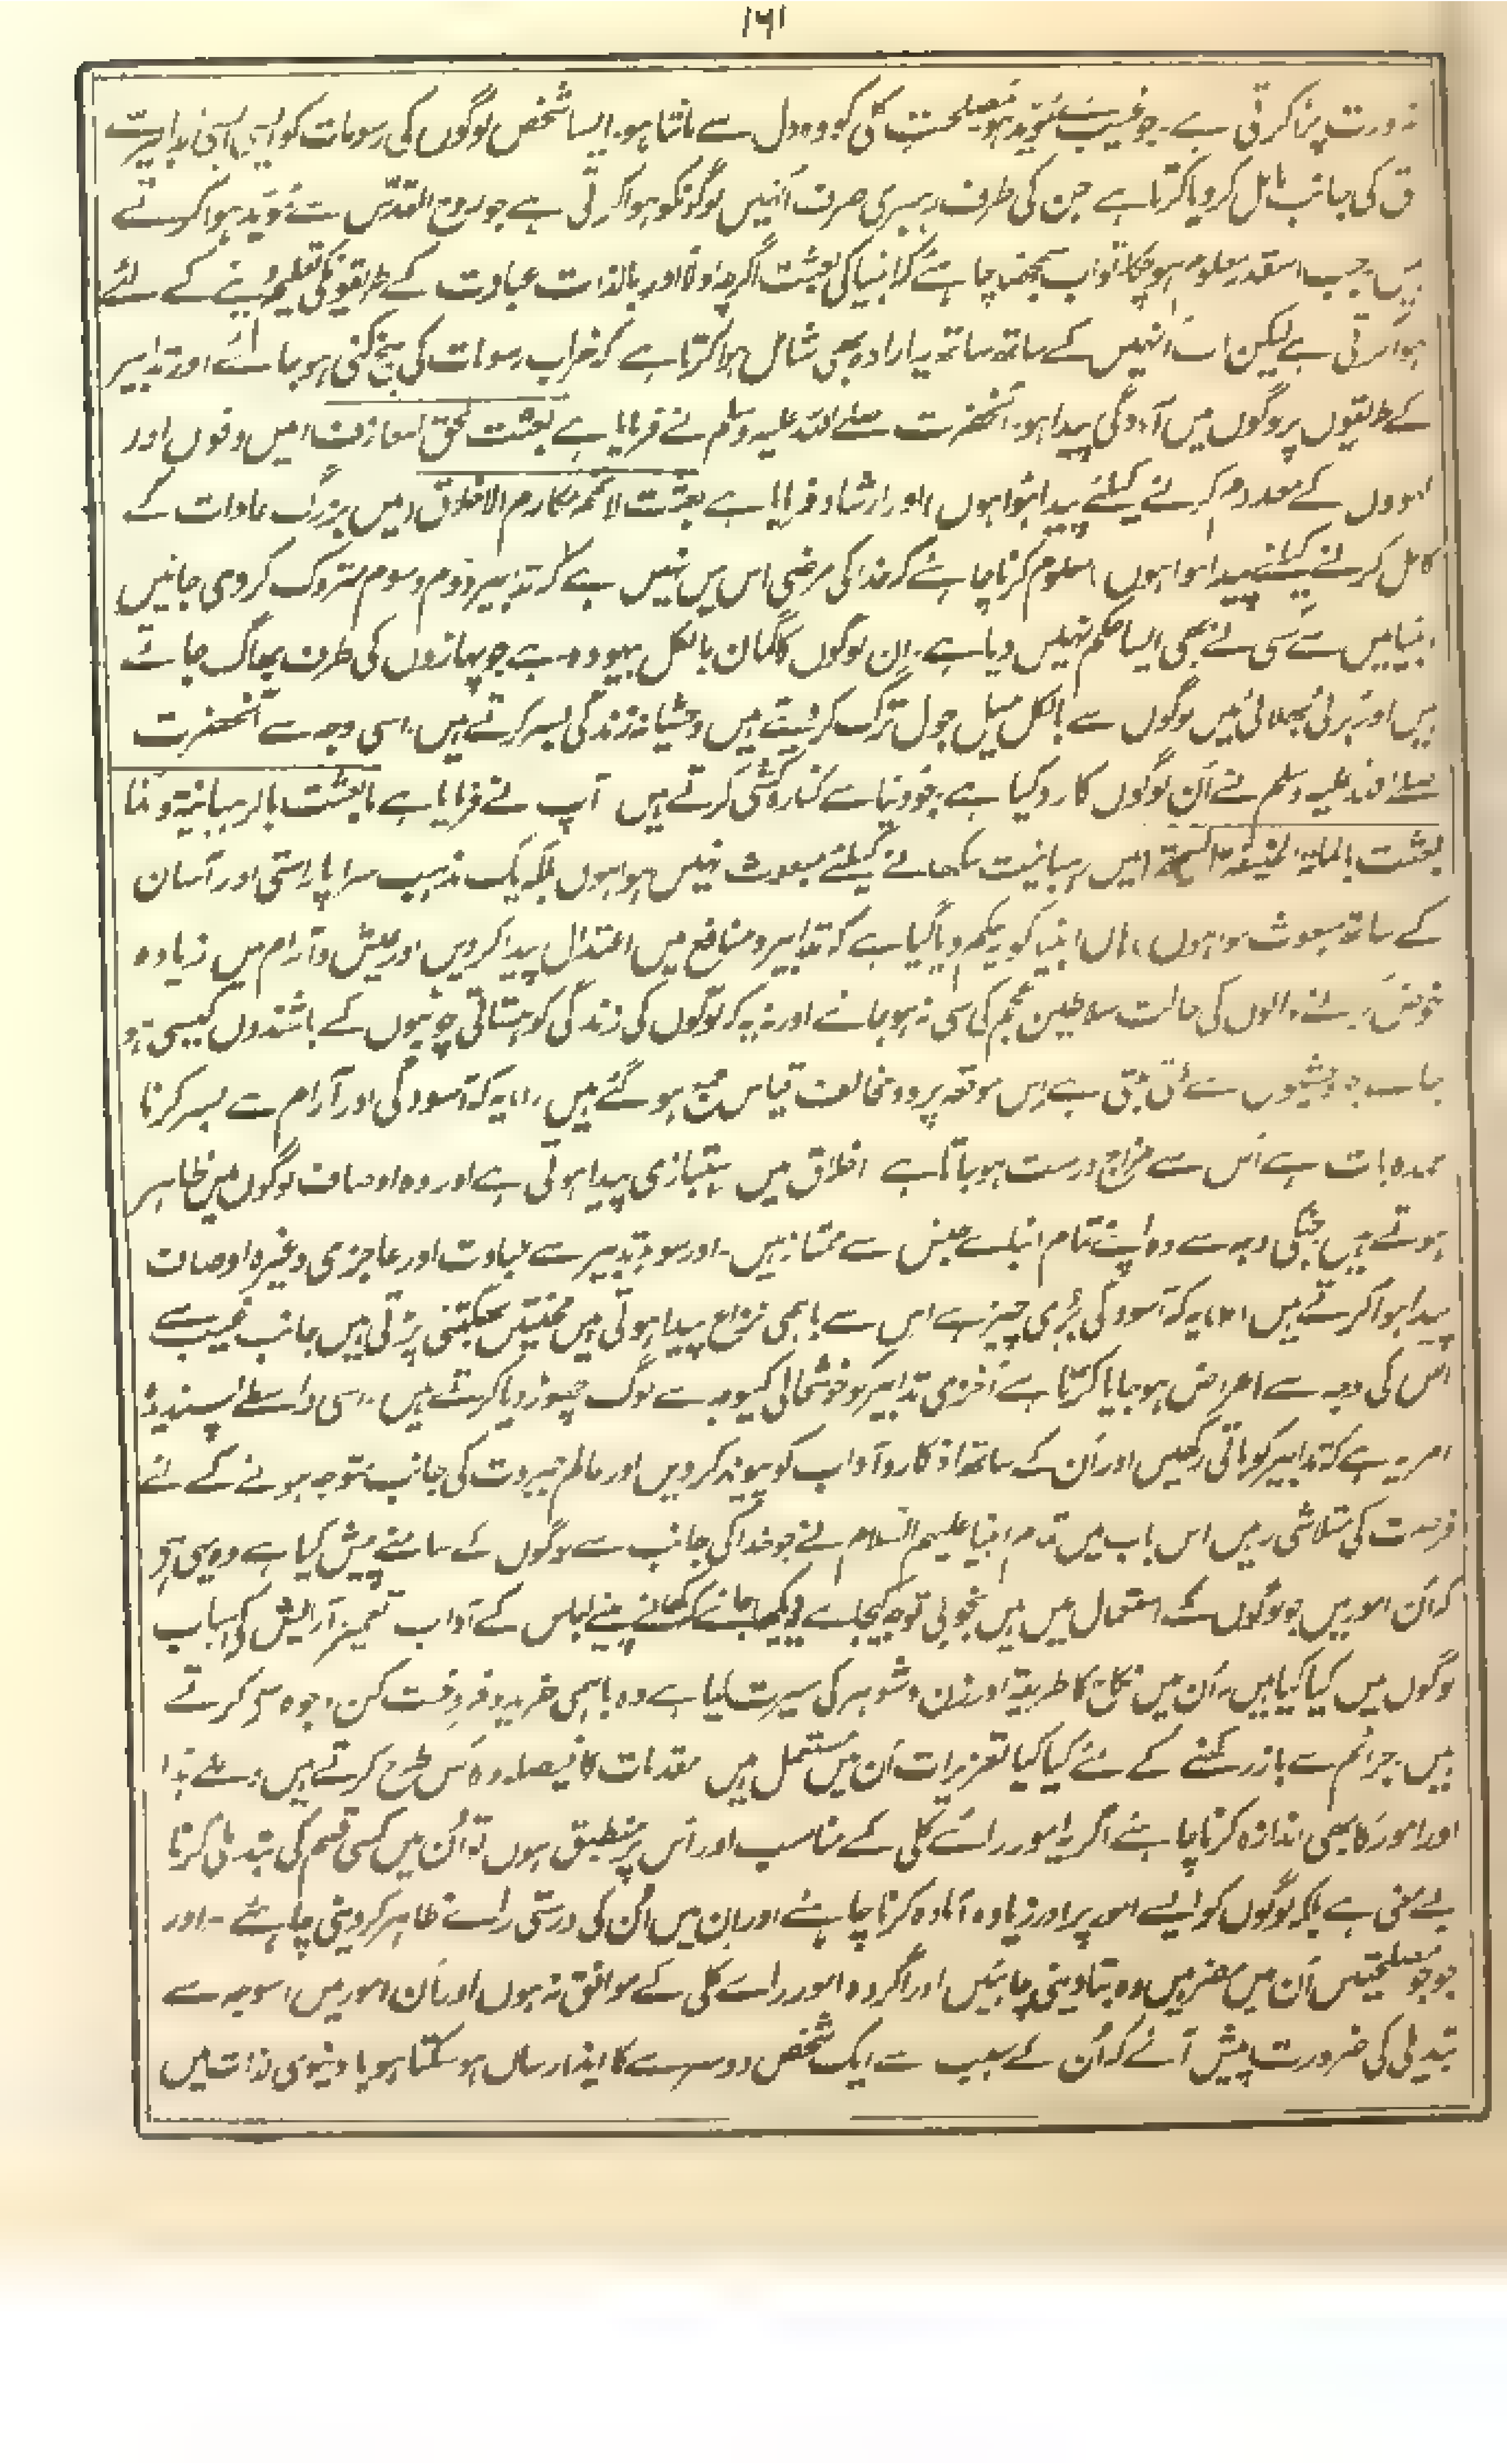 ۱۶۱
ضرورت پڑا کرتی ہے۔ جو غیب سے مؤید ہو مصلحت کلی کو وہ دل سے مانتا ہو۔ ایسا شخص لوگوں کی رسومات کو ایسی ایسی تدابیر
ق کی جانب مائل کر دیا کرتا ہے جن کی طرف رہبری صرف اُنہیں لوگونکو ہوا کرتی ہے جو روح القدس سے مؤید ہوا کرتے
ہیں، جب اسقدر معلوم ہو چکا تو اب سمجھنا چاہئے کہ انبیا کی بعثت اگرچہ اولاً اور بالذات عبادت کے طریقونکی تعلیم دینے کے لئے
ہوا کرتی ہے لیکن اُنہیں کے ساتھ ساتھ یہ ارادہ بھی شامل ہوا کرتا ہے کہ خراب رسومات کی بیخ کنی ہو جائے اور تدابیر
کے طریقوں پر لوگوں میں آمادگی پیدا ہو۔ آنحضرت صلے اللہ علیہ وسلم نے فرمایا ہے بعثت لمحق المعازف (میں دفوں اور
لہووں کے معدوم کرنے کیلئے پیدا ہوا ہوں) اور ارشاد فرمایا ہے بعثت لاتمم مکارم الاخلاق (میں بزرگ عادات کے
کامل کرنے کیلئے پیدا ہوا ہوں) معلوم کرنا چاہئے کہ خدا کی مرضی اس میں نہیں ہے کہ تدابیر دوم وسوم متروک کر دی جائیں
انبیا میں سے کسی نے بھی ایسا حکم نہیں دیا ہے۔ ان لوگوں کا گمان بالکل بیہودہ ہے جو پہاڑوں کی طرف بھاگ جاتے
ہیں اور بُرائی بھلائی میں لوگوں سے بالکل میل جول ترک کر دیتے ہیں وحشیانہ زندگی بسر کرتے ہیں، اسی وجہ سے آنحضرت
صلے اللہ علیہ وسلم نے اُن لوگوں کا رد کیا ہے، جو دنیا سے کنارہ کشی کرتے ہیں آپ نے فرمایا ہے ما بعثت بالرہبانیۃ وانما
بعثت بالملۃ الحنیفۃ السمحۃ (میں رہبانیت سکھانے کیلئے مبعوث نہیں ہوا ہوں بلکہ ایک مذہب سراپا راستی اور آسان
کے ساتھ مبعوث ہوا ہوں) ہاں انبیا کو یہ حکم دیا گیا ہے کہ تدابیر و منافع میں اعتدال پیدا کر دیں اور عیش و آرام میں زیادہ
خوض کرنے والوں کی حالت سلاطین عجم کی سی نہ ہو جائے اور نہ یہ کہ لوگوں کی زندگی کوہستانی چوٹیوں کے باشندوں کیسی ہو
جو وحشیوں سے ملتی جلتی ہے، اس موقعہ پر دو مخالف قیاس جمع ہو گئے ہیں، (۱) یہ کہ آسودگی اور آرام سے بسر کرنا
عمدہ بات ہے اُس سے مزاج درست ہو جاتا ہے اخلاق میں راستبازی پیدا ہوتی ہے اور وہ اوصاف لوگوں میں ظاہر
ہوتے ہیں جنکی وجہ سے وہ اپنے تمام ابنائے جنس سے ممتاز ہیں۔ اور سوء تدبیر سے غباوت اور عاجزی وغیرہ اوصاف
پیدا ہوا کرتے ہیں (۲) یہ کہ آسودگی بُری چیز ہے اس سے باہمی نزاع پیدا ہوتی ہیں محنتیں بھگتنی پڑتی ہیں جانب غیب سے
اس کی وجہ سے اعراض ہو جایا کرتا ہے آخری تدابیر کو خوشحالی کیوجہ سے لوگ چھوڑ دیا کرتے ہیں، اسی واسطے پسندیدہ
امر یہ ہے کہ تدابیر کو باقی رکھیں اور اُن کے ساتھ اذکار و آداب کو پیوند کر دیں اور عالم جبروت کی جانب متوجہ ہونے کے لئے
فرصت کی متلاشی رہیں اس باب میں تمام انبیا علیہم السلام نے جو خدا کی جانب سے لوگوں کے سامنے پیش کیا ہے وہ یہی ہے
کہ اُن امور میں جو لوگوں کے استعمال میں ہیں بخوبی توجہ کیجائے دیکھا جائے کہ کھانے پینے لباس کے آداب تعمیر آرایش کے اسباب
لوگوں میں کیا کیا ہیں، اُن میں نکاح کا طریقہ اور زن و شوہر کی سیرت کیا ہے وہ باہمی خرید و فروخت کن وجوہ سے کرتے
ہیں، جرائم سے باز رکھنے کے لئے کیا کیا تعزیرات اُن میں مستعمل ہیں مقدمات کا فیصلہ وہ کس طرح کرتے ہیں، علے ہذا
اور امور کا بھی اندازہ کرنا چاہئے اگر یہ امور رائے کلی کے مناسب اور اس پر منطبق ہوں تو اُن میں کسی قسم کی تبدیلی کرنا
بے معنی ہے بلکہ لوگوں کو ایسے امور پر اور زیادہ آمادہ کرنا چاہئے اور ان میں اُن کی درستی رائے ظاہر کر دینی چاہئے۔ اور
جو جو مصلحتیں اُن میں مضمر ہیں وہ بتا دینی چاہئیں اور اگر وہ امور رائے کلی کے موافق نہ ہوں اور اُن امور میں اسوجہ سے
تبدیلی کی ضرورت پیش آئے کہ اُن کے سبب سے ایک شخص دوسرے کا ایذا رساں ہو سکتا ہو یا دنیوی لذات میں